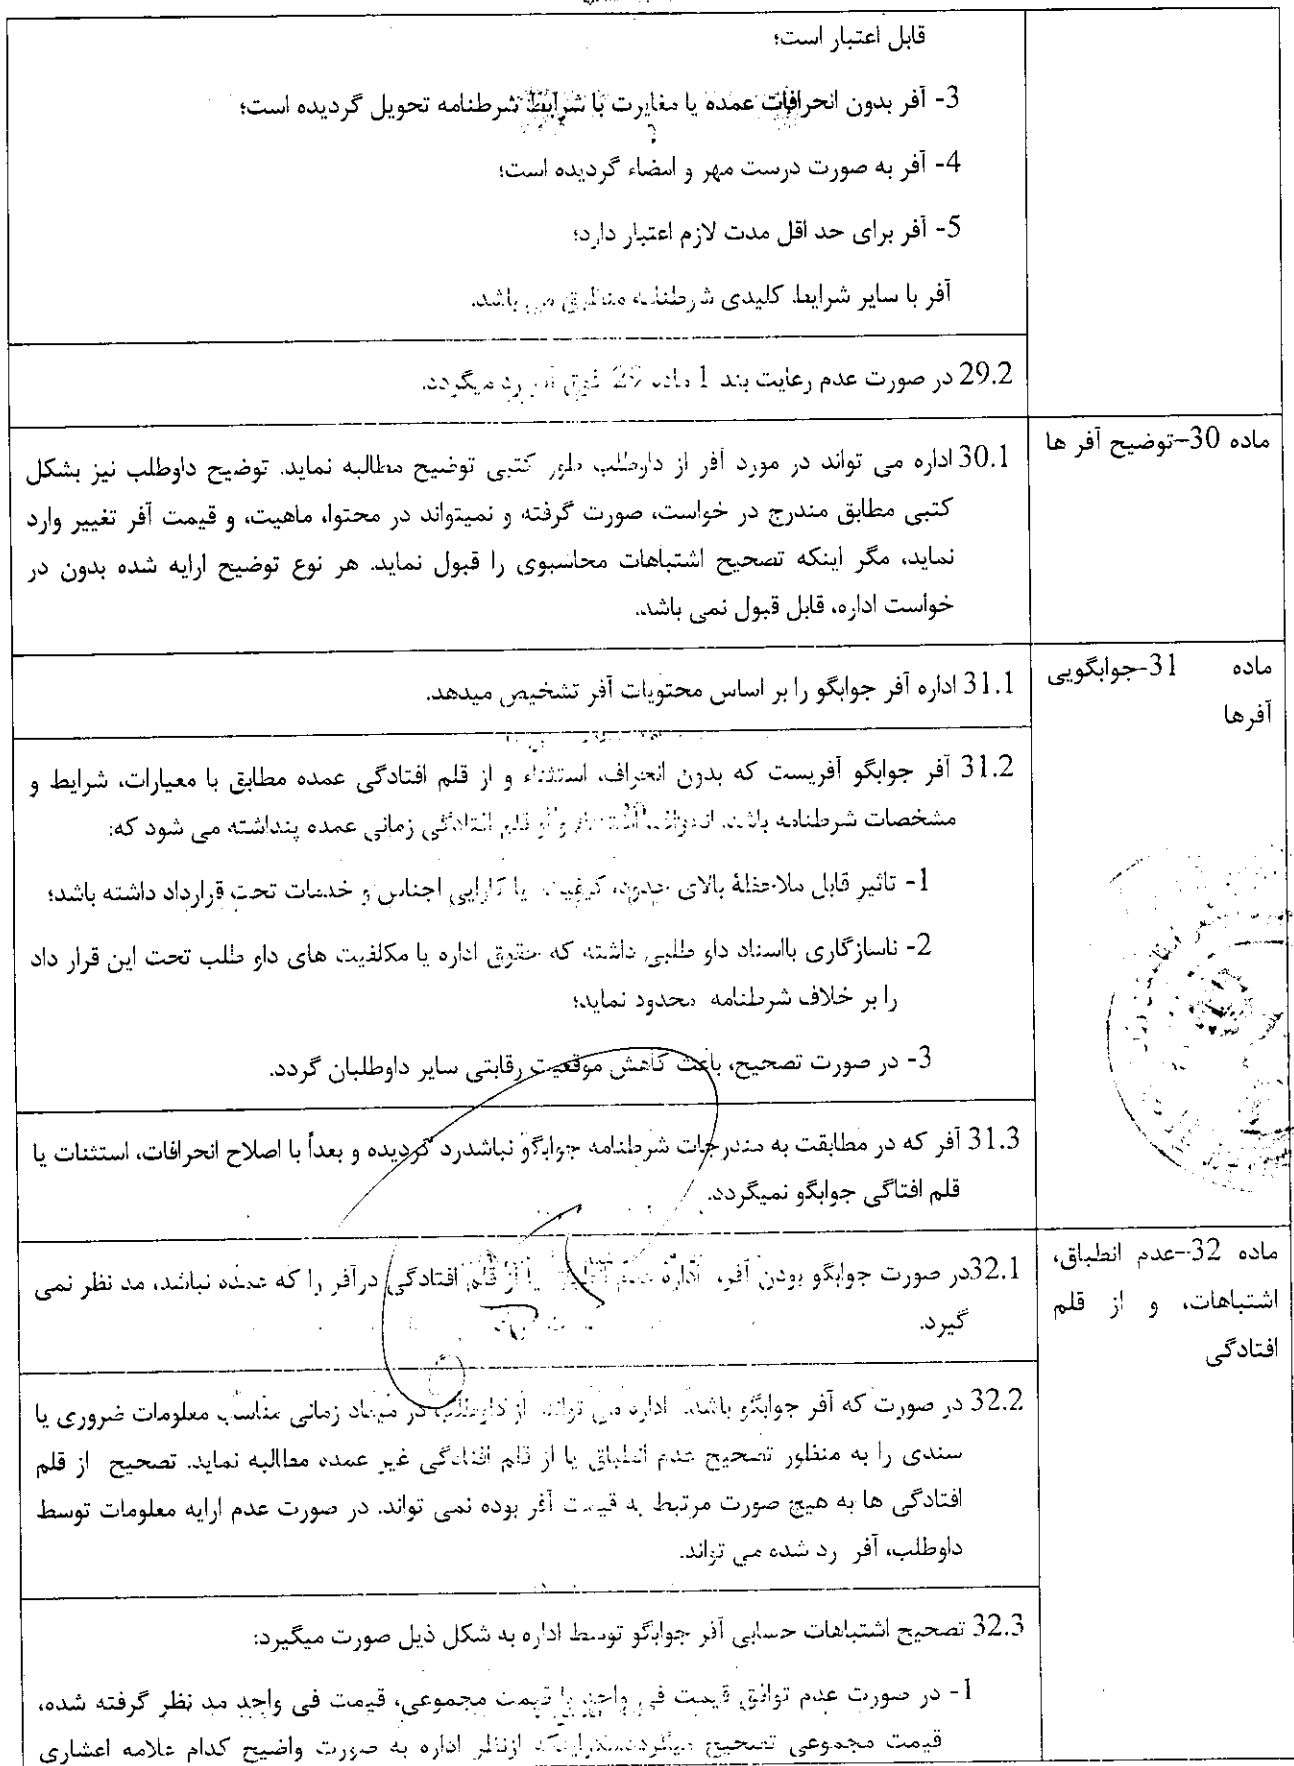 قابل اعتبار است؛
3- آفر بدون انحرافات عمده یا مغایرت با شرایط شرطنامه تحویل گردیده است؛
4- آفر به صورت درست مهر و امضاء گردیده است؛
5- آفر برای حد اقل مدت لازم اعتبار دارد؛
آفر با سایر شرایط کلیدی شرطنامه منطبق می باشد.
29.2 در صورت عدم رعایت بند 1 ماده 29 فوق آفر رد میگردد.
ماده 30-توضیح آفر ها
30.1 اداره می تواند در مورد آفر از داوطلب طور کتبی توضیح مطالبه نماید. توضیح داوطلب نیز بشکل
کتبی مطابق مندرج در خواست، صورت گرفته و نمیتواند در محتوا، ماهیت، و قیمت آفر تغییر وارد
نماید، مگر اینکه تصحیح اشتباهات محاسبوی را قبول نماید. هر نوع توضیح ارایه شده بدون در
خواست اداره، قابل قبول نمی باشد.
ماده 31-جوابگویی
آفرها
31.1 اداره آفر جوابگو را بر اساس محتویات آفر تشخیص میدهد.
31.2 آفر جوابگو آفریست که بدون انحراف، استثناء و از قلم افتادگی عمده مطابق با معیارات، شرایط و
مشخصات شرطنامه باشد. انحراف، استثناء و از قلم افتادگی زمانی عمده پنداشته می شود که:
1- تاثیر قابل ملاحظۀ بالای حدود، کیفیت یا کارایی اجناس و خدمات تحت قرارداد داشته باشد؛
2- ناسازگاری بااسناد داو طلبی داشته که حقوق اداره یا مکلفیت های داو طلب تحت این قرار داد
را بر خلاف شرطنامه محدود نماید؛
3- در صورت تصحیح، باعث کاهش موقعیت رقابتی سایر داوطلبان گردد.
31.3 آفر که در مطابقت به مندرجات شرطنامه جوابگو نباشدرد گردیده و بعداً با اصلاح انحرافات، استثنات یا
قلم افتاگی جوابگو نمیگردد.
ماده 32-عدم انطباق،
اشتباهات، و از قلم
افتادگی
32.1در صورت جوابگو بودن آفر، اداره عدم انطباق یا از قلم افتادگی درآفر را که عمده نباشد، مد نظر نمی
گیرد.
32.2 در صورت که آفر جوابگو باشد، اداره می تواند از داوطلب در میعاد زمانی مناسب معلومات ضروری یا
سندی را به منظور تصحیح عدم انطباق یا از قلم افتادگی غیر عمده مطالبه نماید. تصحیح از قلم
افتادگی ها به هیچ صورت مرتبط به قیمت آفر بوده نمی تواند. در صورت عدم ارایه معلومات توسط
داوطلب، آفر رد شده می تواند.
32.3 تصحیح اشتباهات حسابی آفر جوابگو توسط اداره به شکل ذیل صورت میگیرد:
1- در صورت عدم توافق قیمت فی واحد با قیمت مجموعی، قیمت فی واحد مد نظر گرفته شده،
قیمت مجموعی تصحیح میگرددمگراینکه ازنظر اداره به صورت واضیح کدام علامه اعشاری